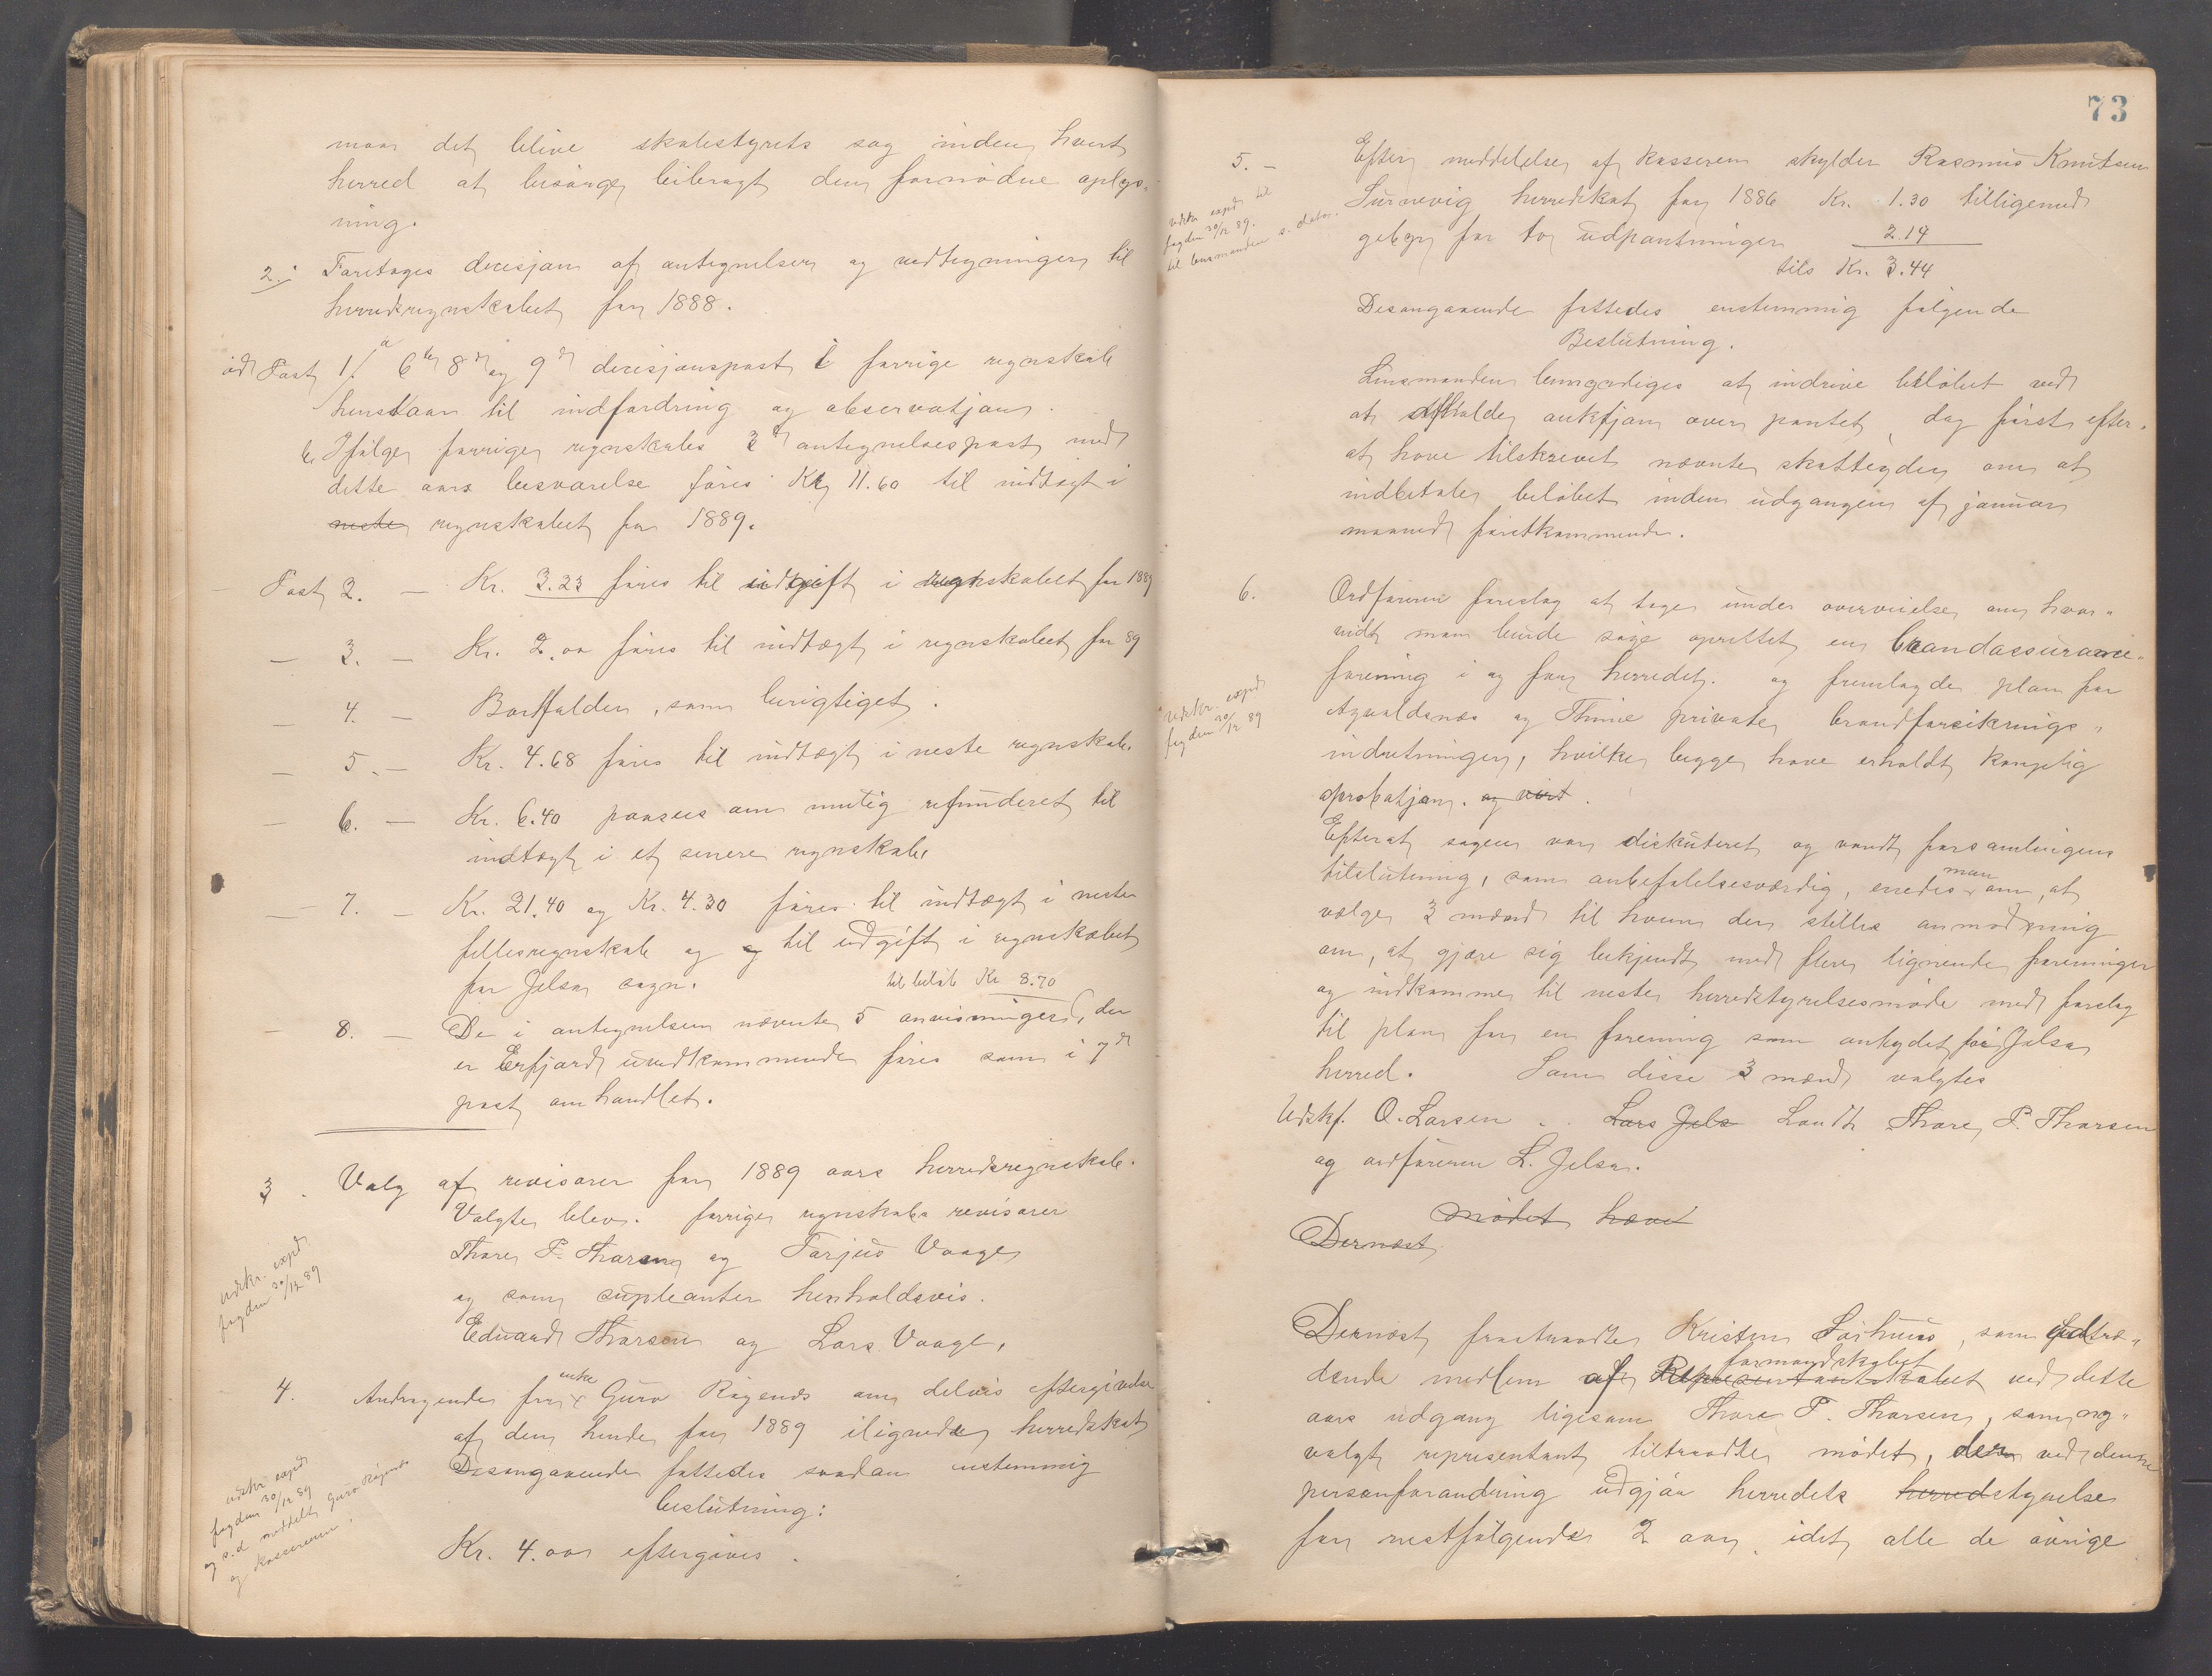 maa det blive skolestyrets sag inden hvert
herred at besørge beibragt den fornødne oplys-
ning.
2. Foretoges decisjon af antegnelser og vedtegninger til
herredsregnskabet for 1888.
ad Post 1. a 6te 8de og 9de decisjonspost i forrige regnskab
henstaar til indfordring og observatjon.
b. Ifølge forrige regnskabs 3de antegnelsespost med
dette aars besvarelse føres Kr 11.60 til indtægt i
neste regnskabet for 1889.
Post 2. — Kr. 3.23 føres til udgift i regnskabet for 1889
— 3. — Kr. 2.00 føres til indtægt i regnskabet for 89
— 4. — Bortfalder, som berigtiget.
— 5. — Kr. 4.68 føres til indtægt i neste regnskab.
— 6. — Kr. 6.40 passes om mulig refunderet til
indtægt i et senere regnskab.
— 7. — Kr. 21.40 og Kr. 4.30 føres til indtægt i neste
fellesregnskab og og til udgift i regnskabet
for Jelsa sogn.
til beløb Kr 8.70
— 8. — De i antegnelsen nævnte 5 anvisninger, der
er Erfjord uvedkommende føres som i 7de
post omhandlet.
3. Valg af revisorer for 1889 aars herredsregnskab.
Valgte blev forrige regnskabs revisorer
Thore P. Tharsen og Torjus Vaage
og som supleanter henholdsvis
Edvard Tharsen og Lars Vaage.
udskr. expd
fogden 30/12 89
4. Andragende fra enke Guro Rägends om delvis eftergivelse
af den hende for 1889 ilignede herredskat
Desangaaende fattedes saadan enstemmig
beslutning:
Kr. 4.00 eftergives.
udskr. expd
fogden 30/12 89
og s.d. meddelt Guro Rägends
og kassereren.
73
5. — Efter meddelelse af kassereren skylder Rasmus Knutsen
Surnevig herredskat for 1886 Kr. 1.30 tilligemed
gebyr for to udpantninger 2.14
tils Kr. 3.44
udskr. expd til
fogden 30/12 89.
til lensmanden s. dato.
Desangaaende fattedes enstemmig følgende
Beslutning.
Lensmanden bemyndiges at inddrive beløbet ved
at afholde auktjon over pantet, dog først efter
at have tilskrevet nævnte skatteyder om at
indbetale beløbet inden udgangen af januar
maaned førstkommende.
6. Ordføreren foreslog at tage under overveielse om hvor-
vidt man burde søge oprettet en brandassurance-
forening i og for herredet. og fremlagde plan for
Avaldsnes og Thime private brandforsikrings-
indretninger, hvilke begge have erholdt kongelig
aprobatjon. og vist.
udskr. expd
fogden 30/12 89
Efterat sagen var diskuteret og vandt forsamlingens
tilslutning, som anbefalelsesværdig, enedes man om, at
vælge 3 mænd til hvem der stilles anmodning
om, at gjøre sig bekjendt med flere lignende foreninger
og indkomme til neste herredstyrelsesmøde med forslag
til plan for en forening som antydet for Jelsa
herred. Som disse 3 mænd valgtes
Udskf. O. Larsen Lars Jels Landh. Thore P. Tharsen
og ordføreren L. Jelsa.
Mødet hævet
Dernæst
Dernæst fratraadte Kristen Sørhuus, som udtræ-
dende medlem af Representantskabet formandskabet ved dette
aars udgang ligesom Thore P. Tharsen, som ny-
valgt representant tiltraadte mødet, der ved denne
personforandring udgjør herredets herredstyrelse
for nestfølgende 2 aar, idet alle de øvrige